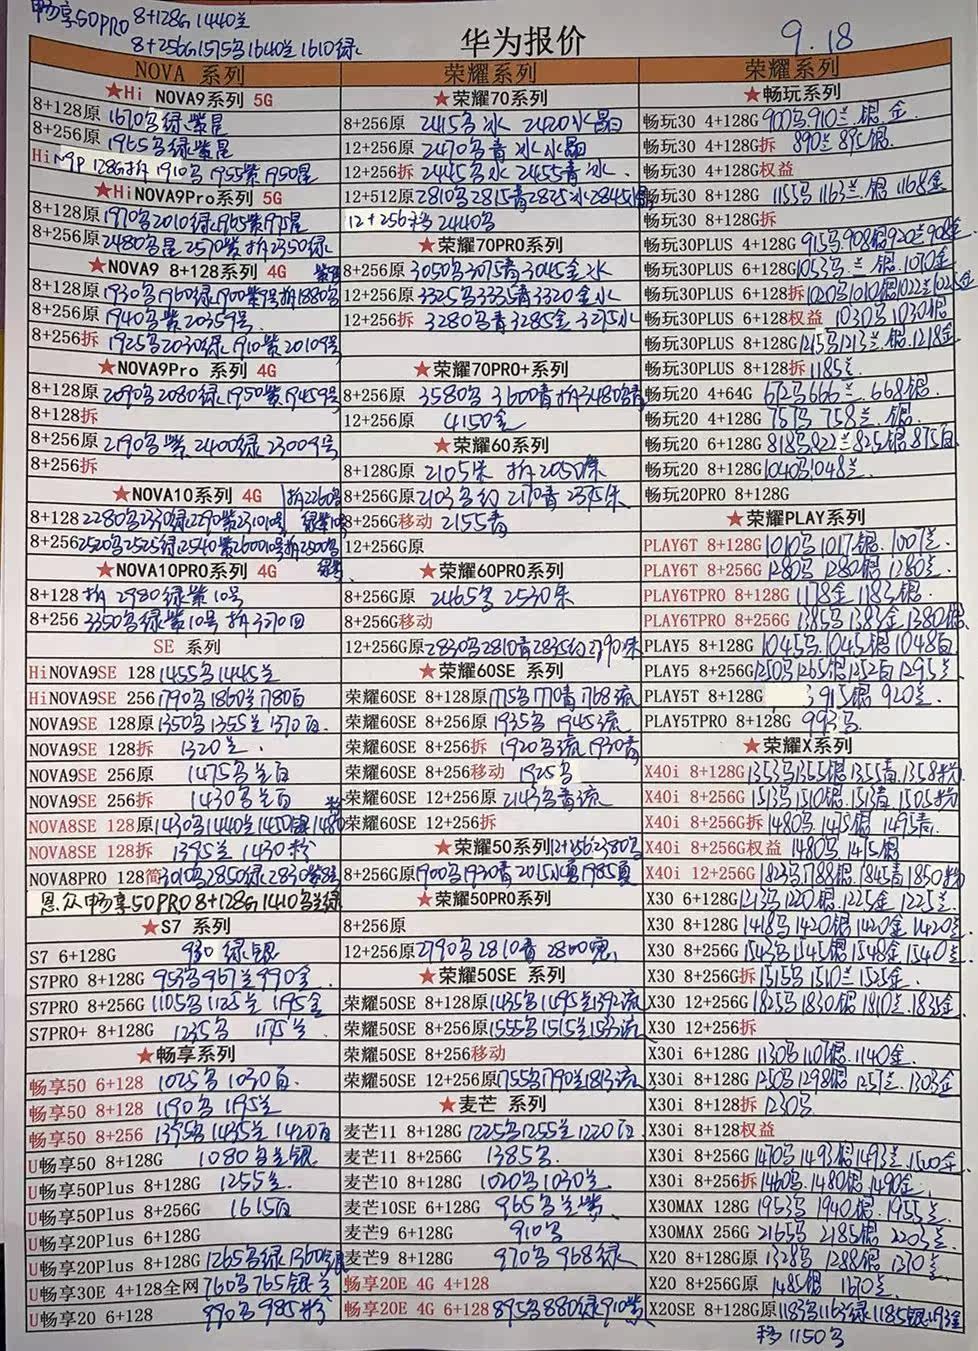 畅享50PRO 8+128G 1440兰
8+256G 1575乌 1640兰 1610绿
华为报价
9.18
NOVA 系列
★Hi NOVA9系列 5G
8+128原 1670乌绿紫星
8+256原 1965乌绿紫星
Hi N9P 128G拆 1910乌 1955紫 1950星
★HiNOVA9Pro系列 5G
8+128原 1970乌2010绿1965紫1975星
8+256原 2480乌星 2570紫 拆2350绿
★NOVA9 8+128系列 4G
8+128原 1930乌1960绿1900紫9号拆1880乌
8+256原 1940乌紫 20359号
8+256拆 1925乌2030绿1910紫20109号
★NOVA9Pro 系列 4G
8+128原 2090乌2080绿1950紫19459号
8+128拆
8+256原 2190乌紫 2400绿 23009号
8+256拆
★NOVA10系列 4G 拆2260乌
8+128 2280乌2330绿2290紫231010号
8+256 2520乌2525绿2540紫260010号拆2500乌
★NOVA10PRO系列 4G
8+128 拆 2980绿紫10号
8+256 3350乌绿紫10号 拆3270
SE 系列
HiNOVA9SE 128 1455乌1445兰
HiNOVA9SE 256 1790乌1860兰1780白
NOVA9SE 128原 1350乌1355兰1370白
NOVA9SE 128拆 1320兰
NOVA9SE 256原 1475乌兰白
NOVA9SE 256拆 1430乌兰白
NOVA8SE 128原 1430乌1440兰1450银1480粉
NOVA8SE 128拆 1395兰 1430粉
NOVA8PRO 128简 3010乌2850绿2830紫
畅享50PRO 8+128G 1410乌兰绿
★S7 系列
S7 6+128G 930 绿银
S7PRO 8+128G 953乌967兰990金
S7PRO 8+256G 1105乌1125兰1195金
S7PRO+ 8+128G 1235乌 1175兰
★畅享系列
畅享50 6+128 1025乌 1030白
畅享50 8+128 1190乌 1195兰
畅享50 8+256 1395乌1435兰1420白
U畅享50 8+128G 1080乌兰银
U畅享50Plus 8+128G 1255兰
U畅享50Plus 8+256G 1615白
U畅享20Plus 6+128G
U畅享20Plus 8+128G 1265乌绿1360银
U畅享30E 4+128全网 760乌765银兰
U畅享20 6+128 990乌985粉
荣耀系列
★荣耀70系列
8+256原 2415乌冰 2420水晶
12+256原 2470乌青冰水晶
12+256拆 2445乌水 2455青冰
12+512原 2810乌2815青2825冰2845
12+256移 2440乌
★荣耀70PRO系列
8+256原 3050乌3075青3045金水
12+256原 3325乌3335青3320金水
12+256拆 3280乌青3285金3295水
★荣耀70PRO+系列
8+256原 3580乌 3600青 拆3480乌青
12+256原 4150金
★荣耀60系列
8+128G原 2105朱 拆2050朱
8+256G原 2103乌幻 2170青 2395朱
8+256G移动 2155青
12+256G原
★荣耀60PRO系列
8+256G原 2465乌 2530朱
8+256G移动
12+256G原 2830乌2810青2835幻2790朱
★荣耀60SE 系列
荣耀60SE 8+128原 1775乌1770青1768流
荣耀60SE 8+256原 1935乌 1945流
荣耀60SE 8+256拆 1920乌流 1930青
荣耀60SE 8+256移动 1925乌
荣耀60SE 12+256原 2143乌青流
荣耀60SE 12+256拆
★荣耀50系列 12+256 2380乌
8+256G原 1900乌1930青2015水1985夏
★荣耀50PRO系列
8+256原
12+256原 2790乌2810青2800
★荣耀50SE 系列
荣耀50SE 8+128原 1435乌1495兰1392流
荣耀50SE 8+256原 1555乌1515兰1533流
荣耀50SE 8+256移动
荣耀50SE 12+256原 1755乌1790兰1813流
★麦芒 系列
麦芒11 8+128G 1225乌1255兰1220白
麦芒11 8+256G 1385乌
麦芒10 8+128G 1020乌1030兰
麦芒10SE 6+128G 965乌兰紫
麦芒9 6+128G 910乌
麦芒9 8+128G 970乌 968绿
畅享20E 4G 4+128
畅享20E 4G 6+128 895乌880绿910紫
荣耀系列
★畅玩系列
畅玩30 4+128G 900乌910兰.银.金
畅玩30 4+128G拆 890兰 895银
畅玩30 4+128G权益
畅玩30 8+128G 1155乌1163兰.银1168金
畅玩30 8+128G拆
畅玩30PLUS 4+128G 915乌908银920兰908金
畅玩30PLUS 6+128G 1053乌.兰.银.1070金
畅玩30PLUS 6+128拆 1020乌1010银1022兰1025金
畅玩30PLUS 6+128权益 1030乌1030银
畅玩30PLUS 8+128G 1215乌1213兰.银.1218金
畅玩30PLUS 8+128拆 1185兰
畅玩20 4+64G 672乌666兰 668银
畅玩20 4+128G 757乌 758兰.银
畅玩20 6+128G 818乌822兰825银875白
畅玩20 8+128G 1040乌1048兰
畅玩20PRO 8+128G
★荣耀PLAY系列
PLAY6T 8+128G 1010乌1017银.1007兰
PLAY6T 8+256G 1280乌 1280银 1280兰
PLAY6TPRO 8+128G 1178金 1183银
PLAY6TPRO 8+256G 1385乌1383金1380银
PLAY5 8+128G 1045乌.1045银1048白
PLAY5 8+256G 1250乌1265银1252白1295兰
PLAY5T 8+128G 915银 920兰
PLAY5TPRO 8+128G 993乌
★荣耀X系列
X40i 8+128G 1353乌1365银1355青.1358粉
X40i 8+256G 1513乌1510银.1513青.1505粉
X40i 8+256G拆 1480乌.1475银 1495青
X40i 8+256G权益 1480乌 1475银
X40i 12+256G 1823乌1788银.1845青1850粉
X30 6+128G 1213乌1220银.1225金1225兰
X30 8+128G 1418乌1420银1420金1420兰
X30 8+256G 1543乌1545银1548金1540兰
X30 8+256G拆 1515乌1510兰1525金
X30 12+256G 1825乌1830银1810兰.1835金
X30 12+256拆
X30i 6+128G 1130乌1107银.1140金
X30i 8+128G 1250乌1298银1257兰.1303金
X30i 8+128拆 1230乌
X30i 8+128权益
X30i 8+256G 1470乌.1493银1493兰.1500金
X30i 8+256拆 1460乌.1480银.1490金
X30MAX 128G 1953乌 1940银.1955兰
X30MAX 256G 2165乌 2185银 2205兰
X20 8+128G原 1328乌 1288银 1310兰
X20 8+256G原 1485银 1670兰
X20SE 8+128G原 1183乌1163绿1185银1193金
移1150乌